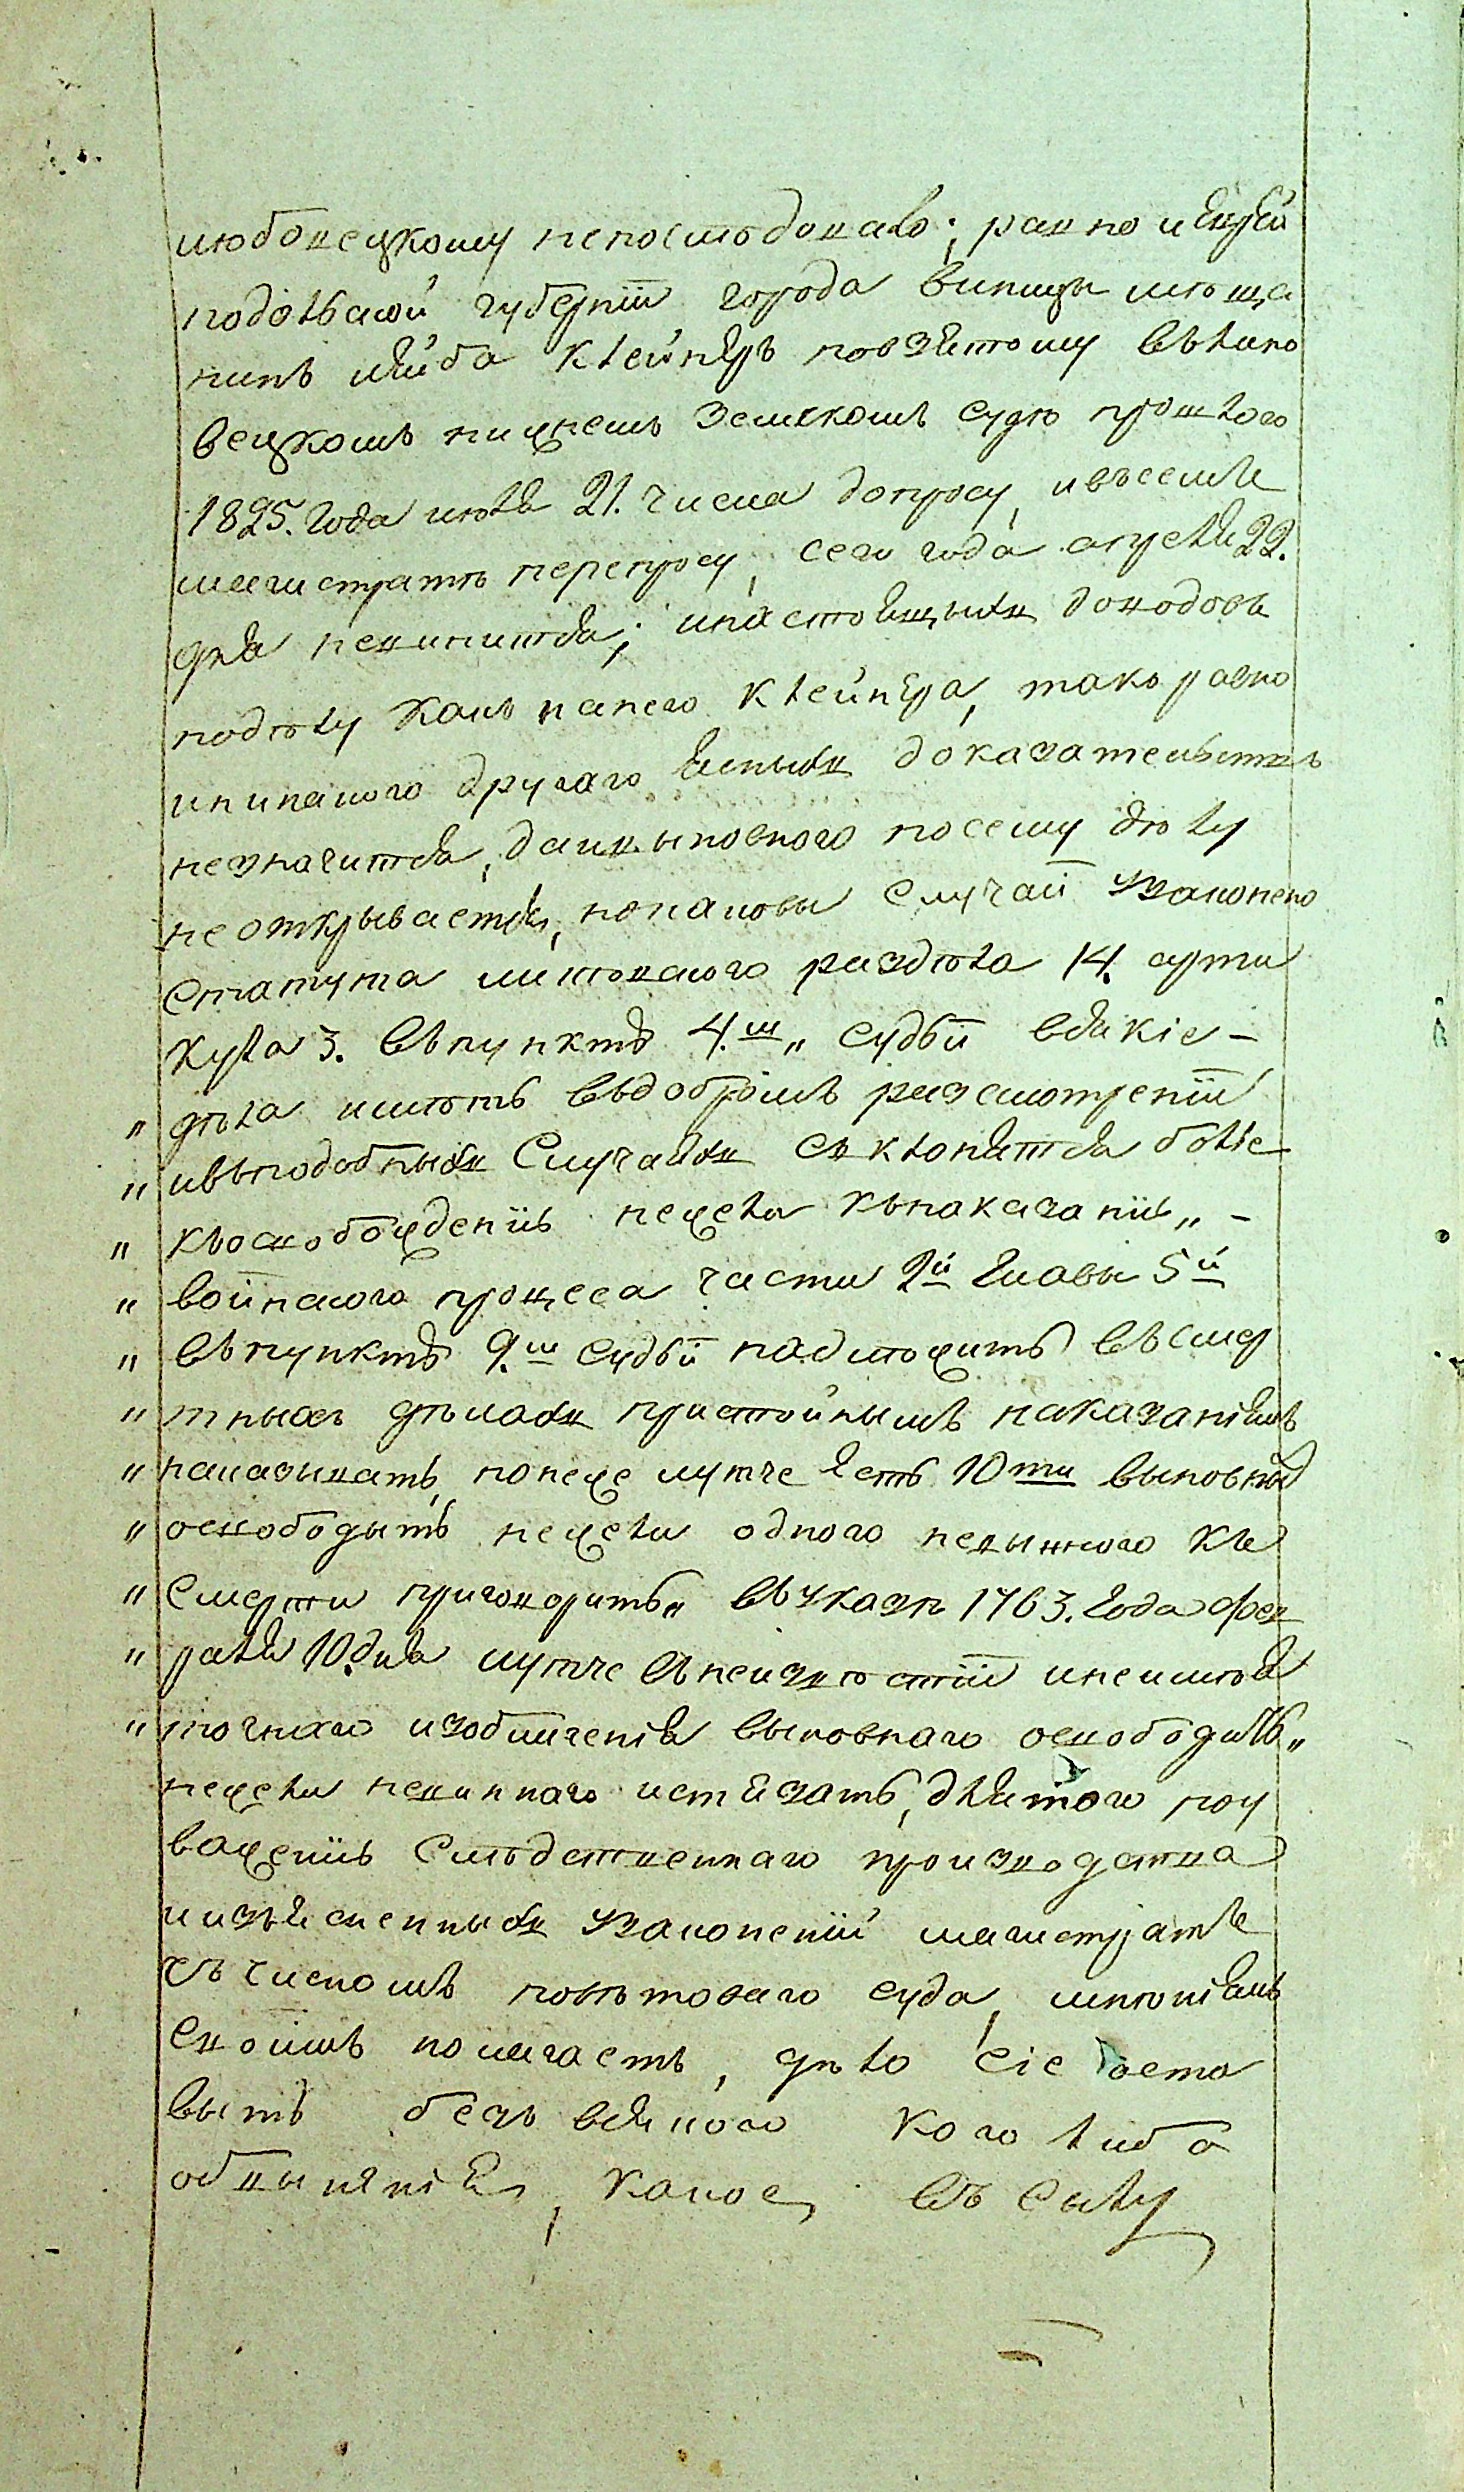 любовецкому непоследовало; равно и еврей
подольской губернїи города винницы меща
нинъ лейба клейнеръ повзятому въ липо
вецкомъ нижнемъ земскомъ судѣ прошлого
1825. года июля 21. числа допросу, ивъсемъ
магистратѣ перепросу, сего года апреля 22.
дня невинится; инастоящыхъ доводовъ
поделу какъ нанего клейнера, такъ равно
ининакого другаго ясныхъ доказательствъ
незначится, даивыновного посему делу
неоткрывается, нонаковы случаи узаконено
статута литовского раздѣла 14. арти
кула 3. въпунктѣ 4.мъ „ судьи всякіе –
„ дѣла имѣютъ въдобромъ разсмотренїи
„ ивъподобныхъ случаяхъ склонятся боліе
„ къосвобожденїю нежели кънаказанїю „ –
„ воинского процесса части 2й главы 5й
„ въпунктѣ 9.мъ судьи надлежитъ въсмер
„ тныхъ дѣлахъ пристойнымъ наказаніемъ
„ наказывать, понеже лутче есть 10ти выновныхъ
„ освободыть нежели одного невынного къ
„ смерти приговорить „ въуказѣ 1763. года фев
„ раля 10. дня лутче внеизвѣстїи инеимѣя
„ точнаго изобличенія выновнаго освободить „
нежели невиннаго истязать, длятого поу
важенїю следственнаго произвожства
иизъясненныхъ узаконенїй магистратъ
съ членомъ повѣтоваго суда, мнѣніемъ
своимъ полагаетъ, дѣло сіе оста
вить безъ всякого кого либо
обвыненія, какое въ силу